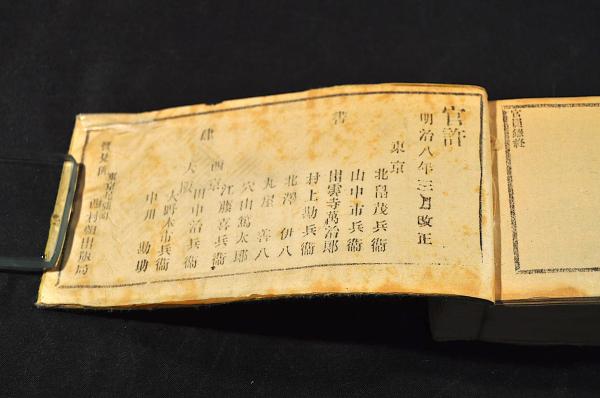 官員録終
官許
明治八年三月改正
東京
書
北畠茂兵衞
山中市兵衞
出雲寺萬治郎
村上勘兵衞
北澤伊八
丸屋善八
穴山篤太郎
肆
江藤喜兵衞
西京
田中治兵衞
大阪
大野木市兵衞
中川勘助
西村組出版局